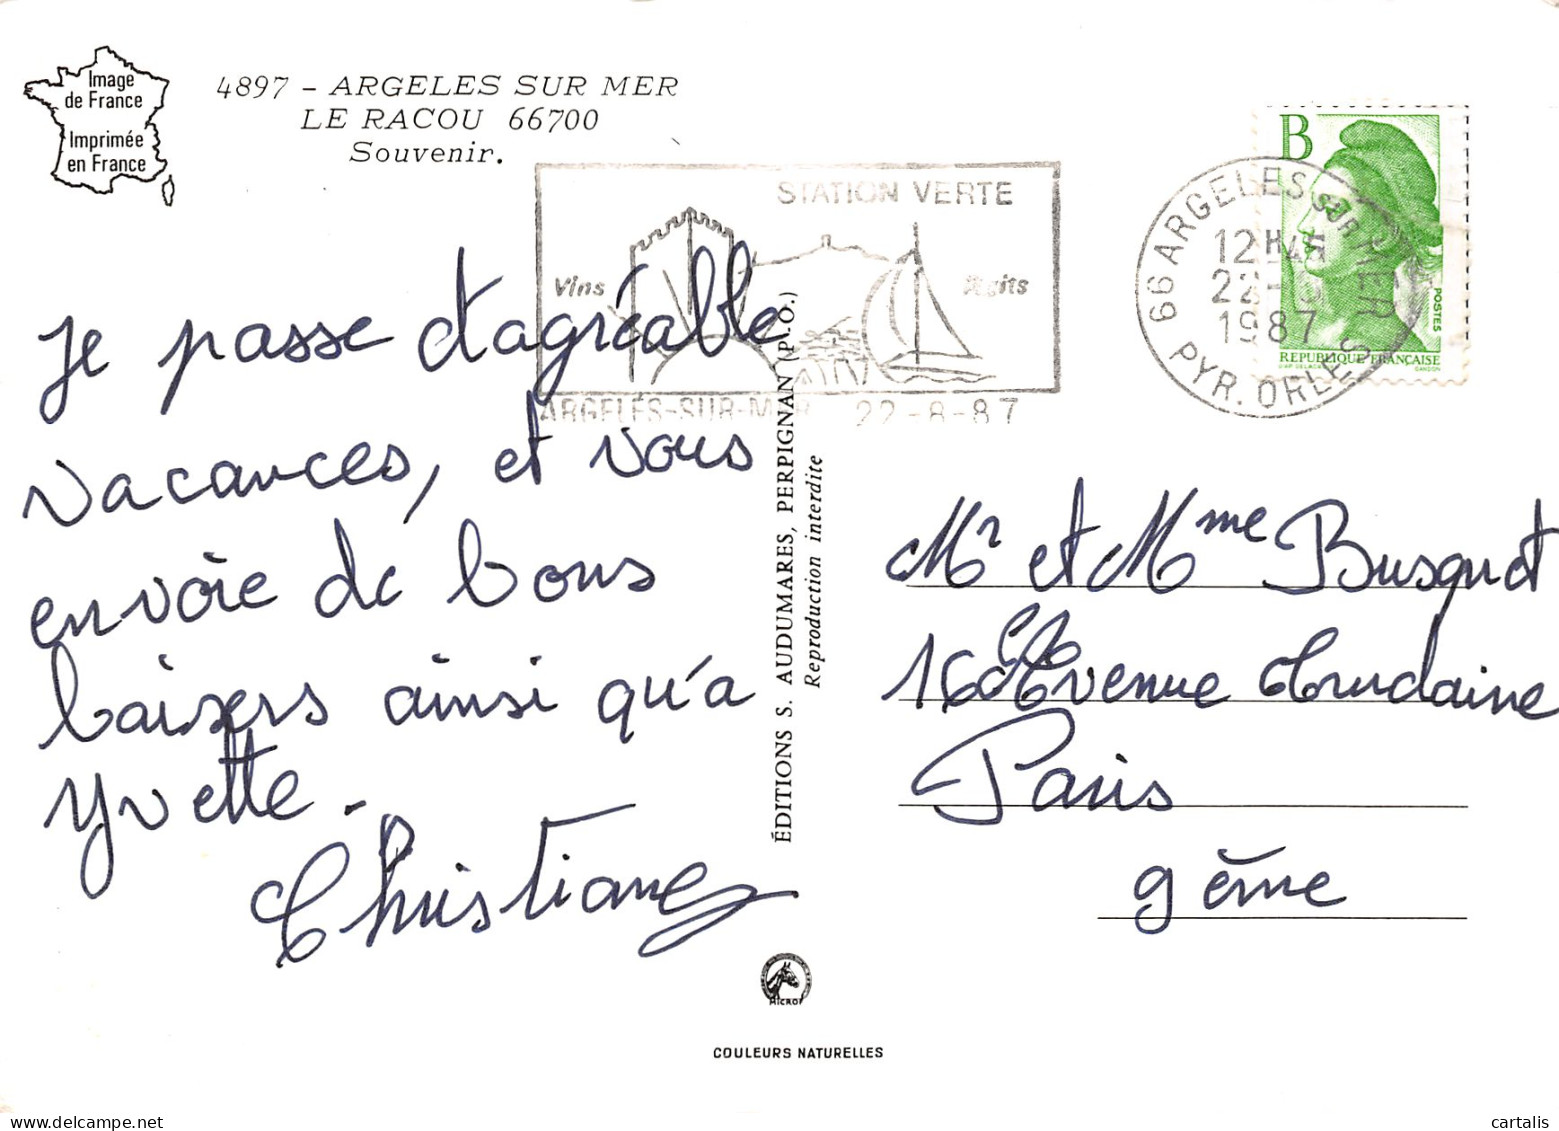 Image
de France
Imprimée
en France
4897 - ARGELES SUR MER
LE RACOU 66700
Souvenir.
STATION VERTE
Vins
ARGELÈS-SUR-MER 22-8-87
66 ARGELES SUR MER
12H45
22-8
1987
PYR. ORLES
B
POSTES
REPUBLIQUE FRANÇAISE
Je passe d'agréable
vacances, et vous
envoie de bons
baisers ainsi qu'a
Yvette.
Christiane
ÉDITIONS S. AUDUMARES, PERPIGNAN (P.-O.)
Reproduction interdite
Mr et Mme Busquet
16 Avenue Trudaine
Paris
9 ème
COULEURS NATURELLES
cartalis